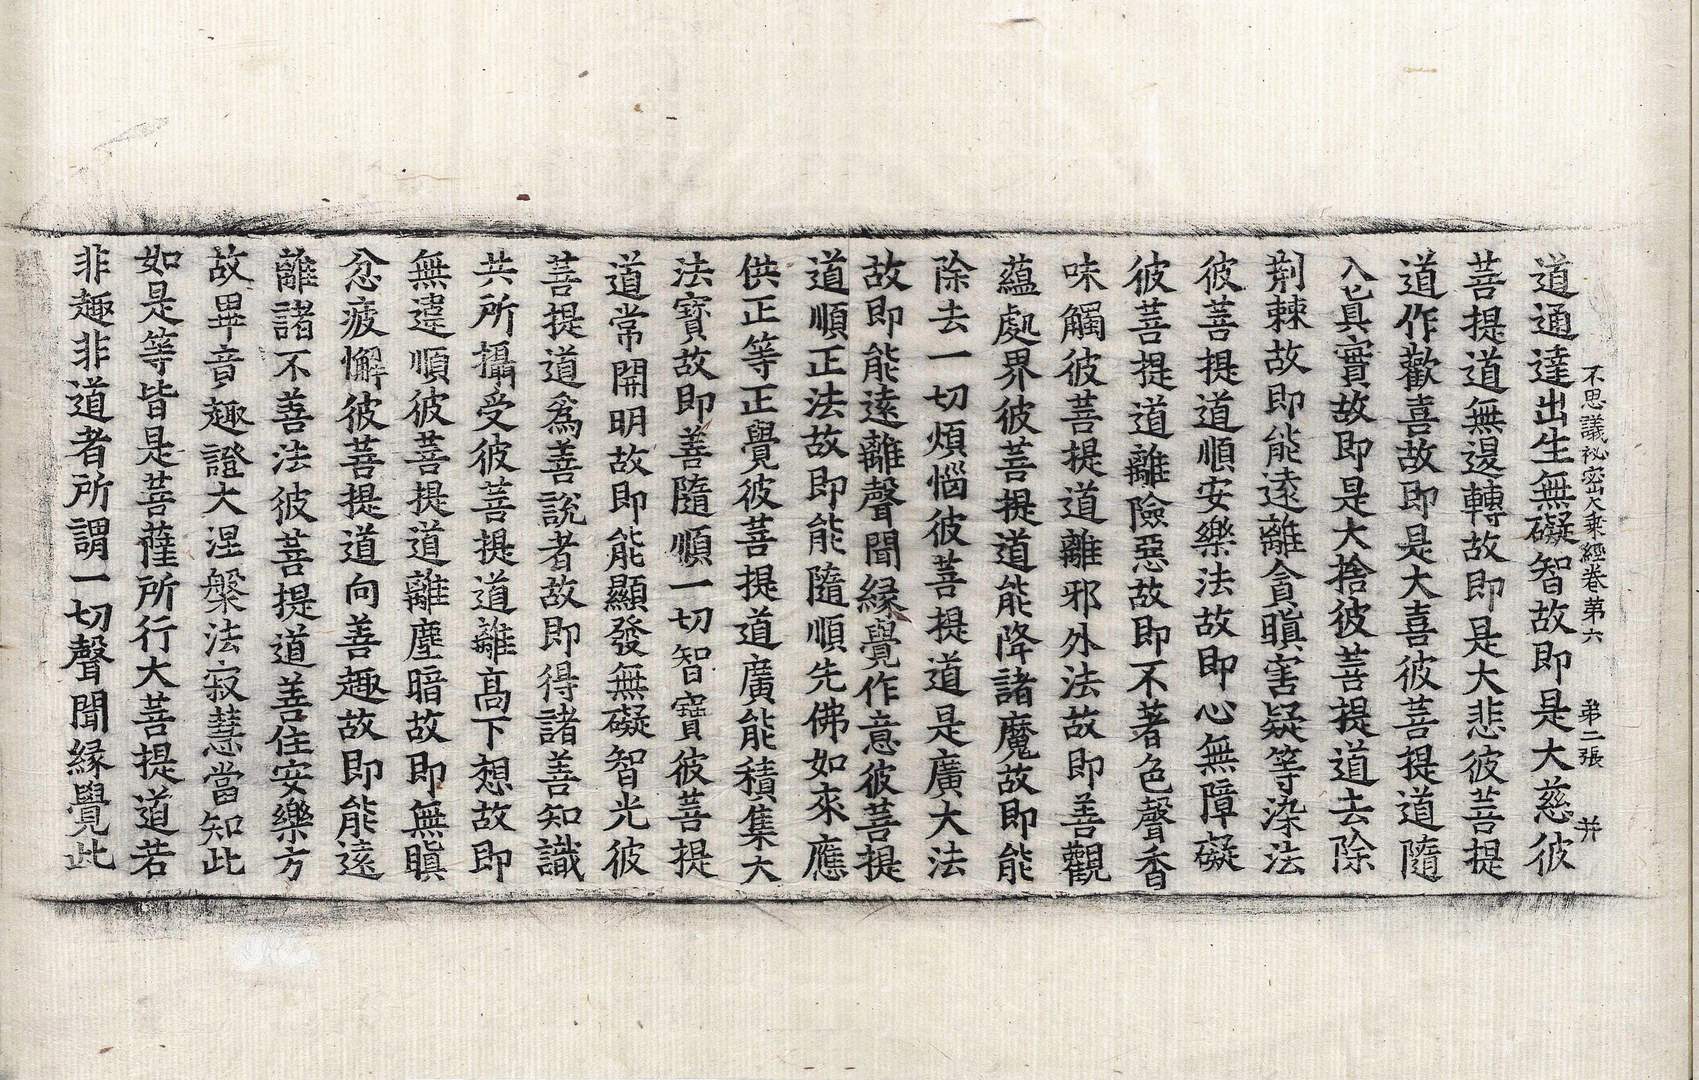 不思議秘密大乘經卷第六　第二張　并
道通達出生無礙智故即是大慈彼
菩提道無邊轉故即是大悲彼菩提
道作歡喜故即是大喜彼菩提道隨
入已真實故即是大捨彼菩提道去除
荊棘故即能遠離貪瞋害疑等染法
彼菩提道順安樂法故即心無障礙
彼菩提道離險惡故即不著色聲香
味觸彼菩提道離邪外法故即善觀
蘊處界彼菩提道能降諸魔故即能
除去一切煩惱彼菩提道是廣大法
故即能遠離聲聞緣覺作意彼菩提
道順正法故即能隨順先佛如來應
供正等正覺彼菩提道廣能積集大
法寶故即善隨順一切智寶彼菩提
道常開明故即能顯發無礙智光彼
菩提道爲善說者故即得諸善知識
共所攝受彼菩提道離高下想故即
無違順彼菩提道離塵暗故即無瞋
忿疲懈彼菩提道向善趣故即能遠
離諸不善法彼菩提道善住安樂方
故畢竟趣證大涅槃法寂慧當知此
如是等皆是菩薩所行大菩提道若
非趣非道者所謂一切聲聞緣覺此